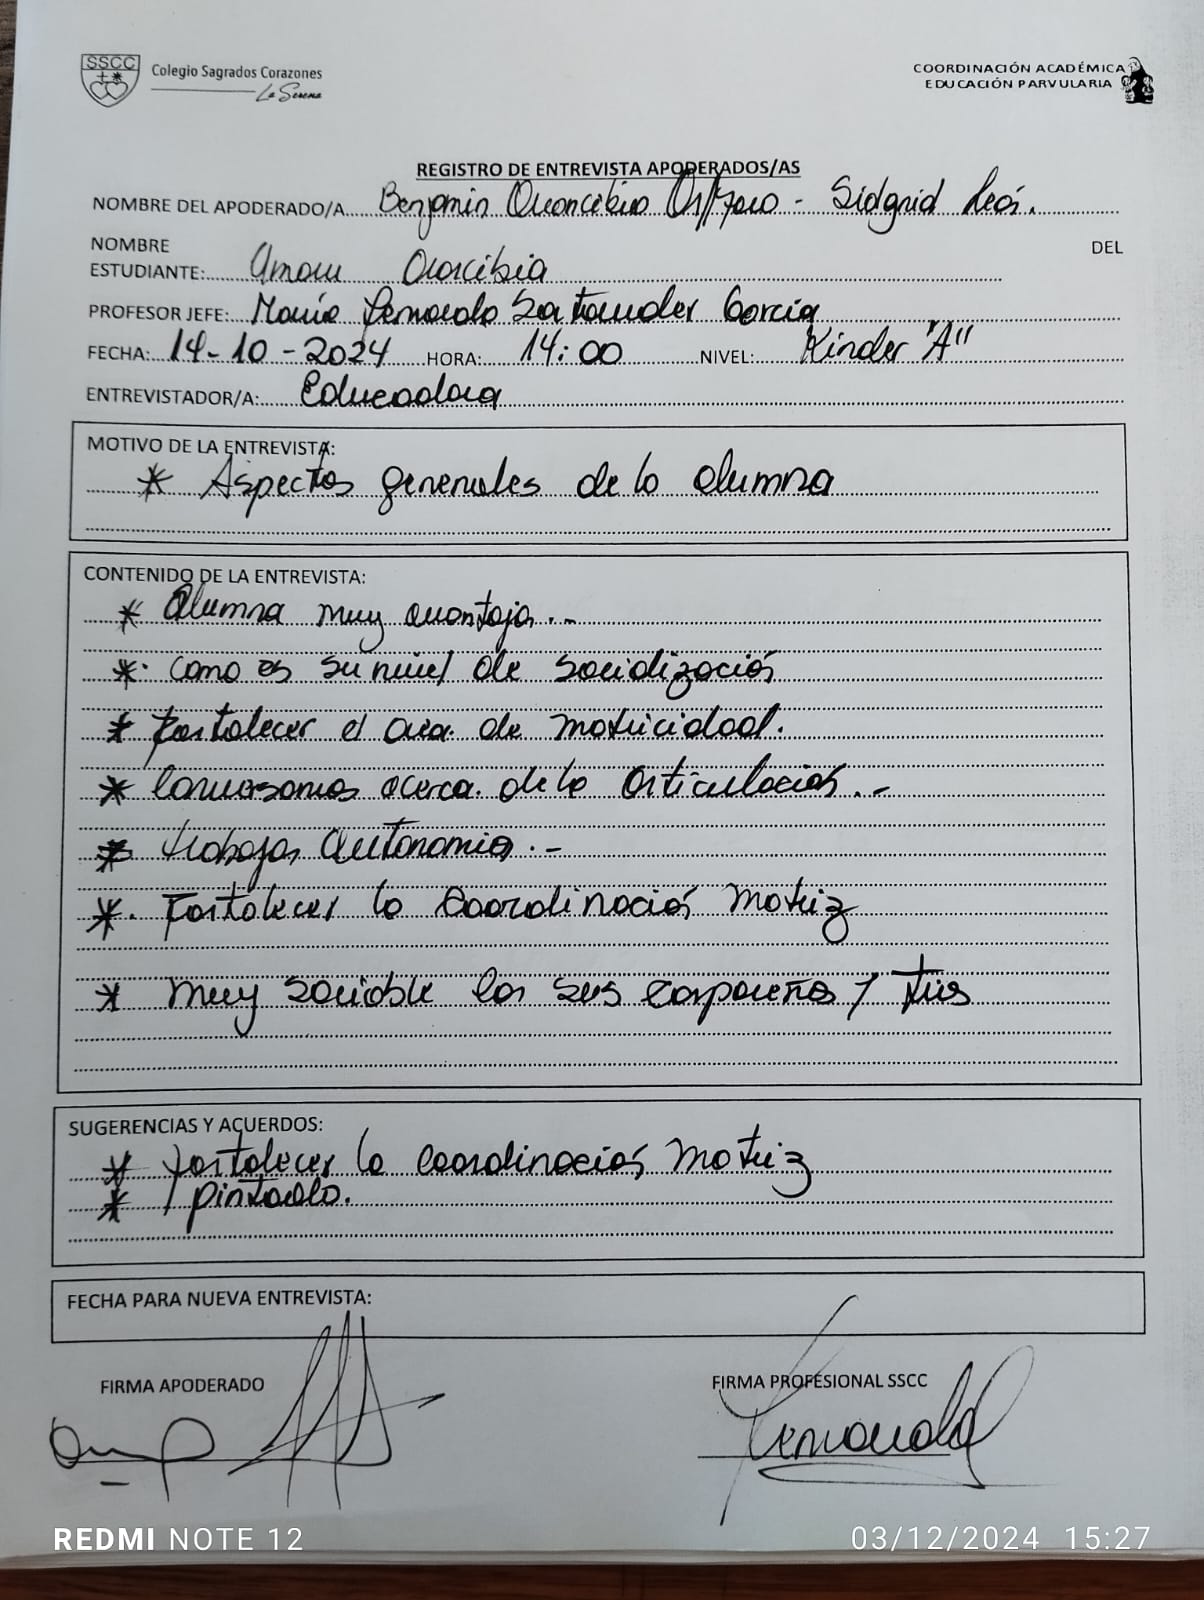 SSCC
Colegio Sagrados Corazones
La Serena
COORDINACIÓN ACADÉMICA
EDUCACIÓN PARVULARIA
REGISTRO DE ENTREVISTA APODERADOS/AS
NOMBRE DEL APODERADO/A Benjamin - Sidgrid León.
NOMBRE DEL
ESTUDIANTE: Aracibia
PROFESOR JEFE: María Fernanda Santander García
FECHA: 14-10-2024 HORA: 14:00 NIVEL: Kinder "A"
ENTREVISTADOR/A: Educadora
MOTIVO DE LA ENTREVISTA:
* Aspectos generales de la alumna
CONTENIDO DE LA ENTREVISTA:
* Alumna muy
* como es su nivel de socialización
* fortalecer el area de motricidad.
* Conversamos acerca de la articulación.-
* trabajar autonomia.-
* Fortalecer la coordinación motriz
* muy sociable con sus y
SUGERENCIAS Y ACUERDOS:
* fortalecer la coordinación motriz
* / pintado.
FECHA PARA NUEVA ENTREVISTA:
FIRMA APODERADO
FIRMA PROFESIONAL SSCC
REDMI NOTE 12
03/12/2024 15:27